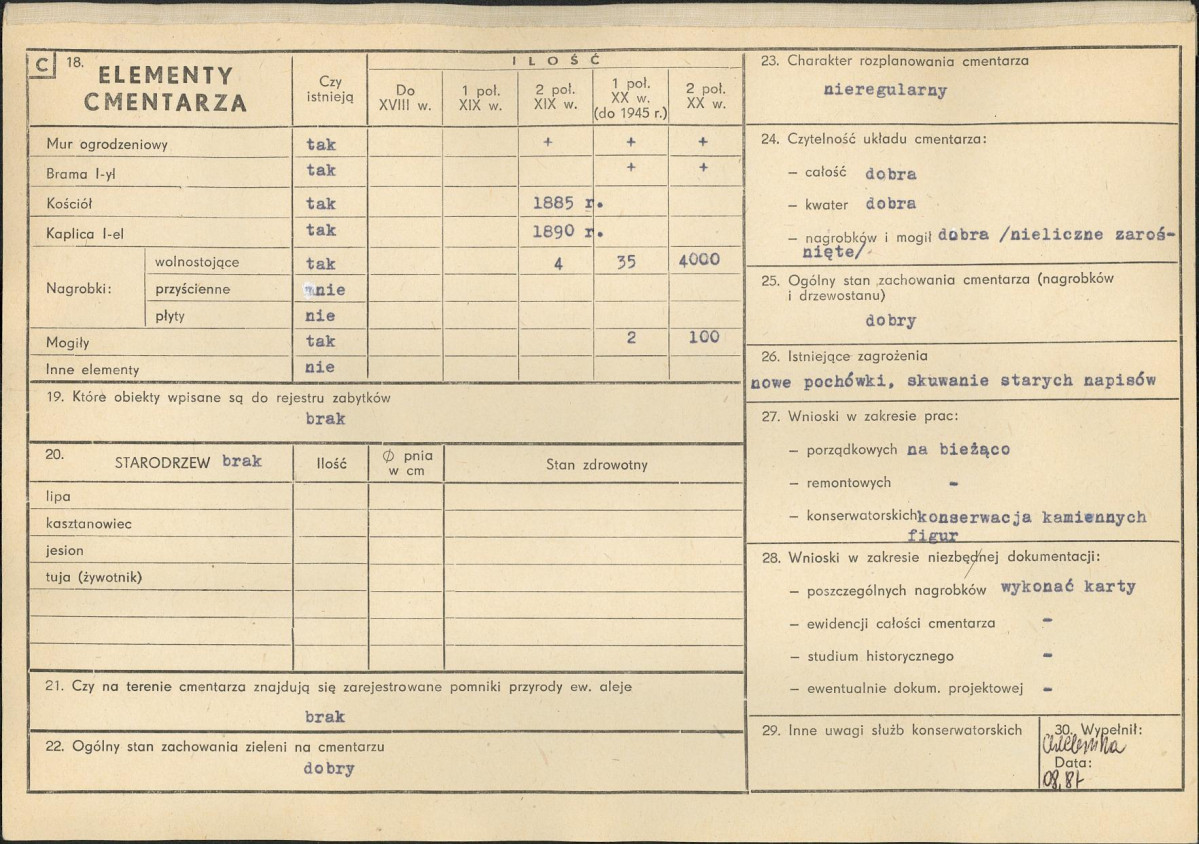 C 18. ELEMENTY CMENTARZA
Czy istnieją
ILOŚĆ
Do XVIII w.
1 poł. XIX w.
2 poł. XIX w.
1 poł. XX w. (do 1945 r.)
2 poł. XX w.
Mur ogrodzeniowy tak + + +
Brama I-yl tak + +
Kościół tak 1885 r.
Kaplica I-el tak 1890 r.
Nagrobki:
wolnostojące tak 4 35 4000
przyścienne nie
płyty nie
Mogiły tak 2 100
Inne elementy nie
19. Które obiekty wpisane są do rejestru zabytków
brak
20. STARODRZEW brak
Ilość
Ø pnia w cm
Stan zdrowotny
lipa
kasztanowiec
jesion
tuja (żywotnik)
21. Czy na terenie cmentarza znajdują się zarejestrowane pomniki przyrody ew. aleje
brak
22. Ogólny stan zachowania zieleni na cmentarzu
dobry
23. Charakter rozplanowania cmentarza
nieregularny
24. Czytelność układu cmentarza:
– całość dobra
– kwater dobra
– nagrobków i mogił dobra /nieliczne zaroś-
nięte/
25. Ogólny stan zachowania cmentarza (nagrobków
i drzewostanu)
dobry
26. Istniejące zagrożenia
nowe pochówki, skuwanie starych napisów
27. Wnioski w zakresie prac:
– porządkowych na bieżąco
– remontowych -
– konserwatorskich konserwacja kamiennych
figur
28. Wnioski w zakresie niezbędnej dokumentacji:
– poszczególnych nagrobków wykonać karty
– ewidencji całości cmentarza -
– studium historycznego -
– ewentualnie dokum. projektowej -
29. Inne uwagi służb konserwatorskich
30. Wypełnił:
Data: